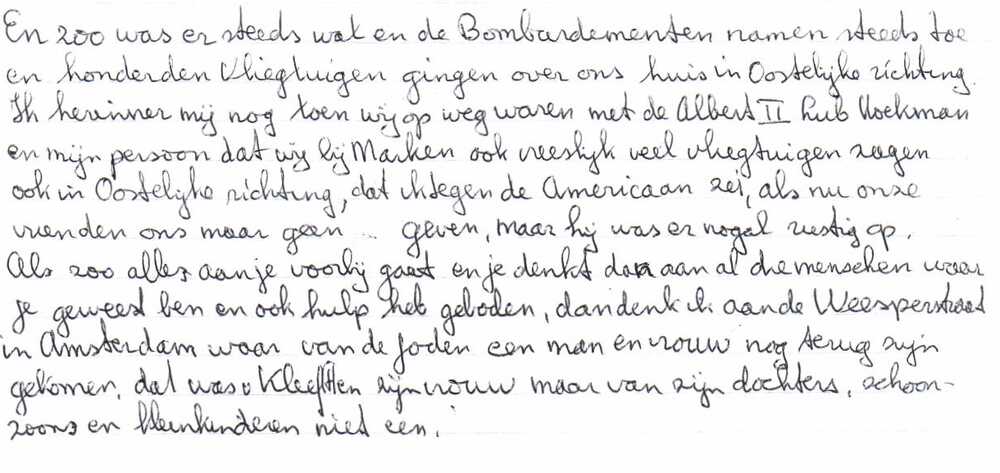 En zoo was er steeds wat en de Bombardementen namen steeds toe
en honderden vliegtuigen gingen over ons huis in Oostelijke richting.
Ik herinner mij nog toen wij op weg waren met de Albert II Huib Hoekman
en mijn persoon dat wij bij Marken ook vreeslijk veel vliegtuigen zagen
ook in Oostelijke richting, dat ik tegen de Americaan zei, als nu onze
vrienden ons maar geen ... geven, maar hij was er nogal rustig op.
Als zoo alles aan je voorbij gaat en je denkt dan aan al die menschen waar
je geweest ben en ook hulp heb geboden, dan denk ik aan de Weesperstraat
in Amsterdam waar van de Joden een man en vrouw nog terug zijn
gekomen, dat was v Kleeff en zijn vrouw maar van zijn dochters, schoon-
zoons en kleinkinderen niet een.